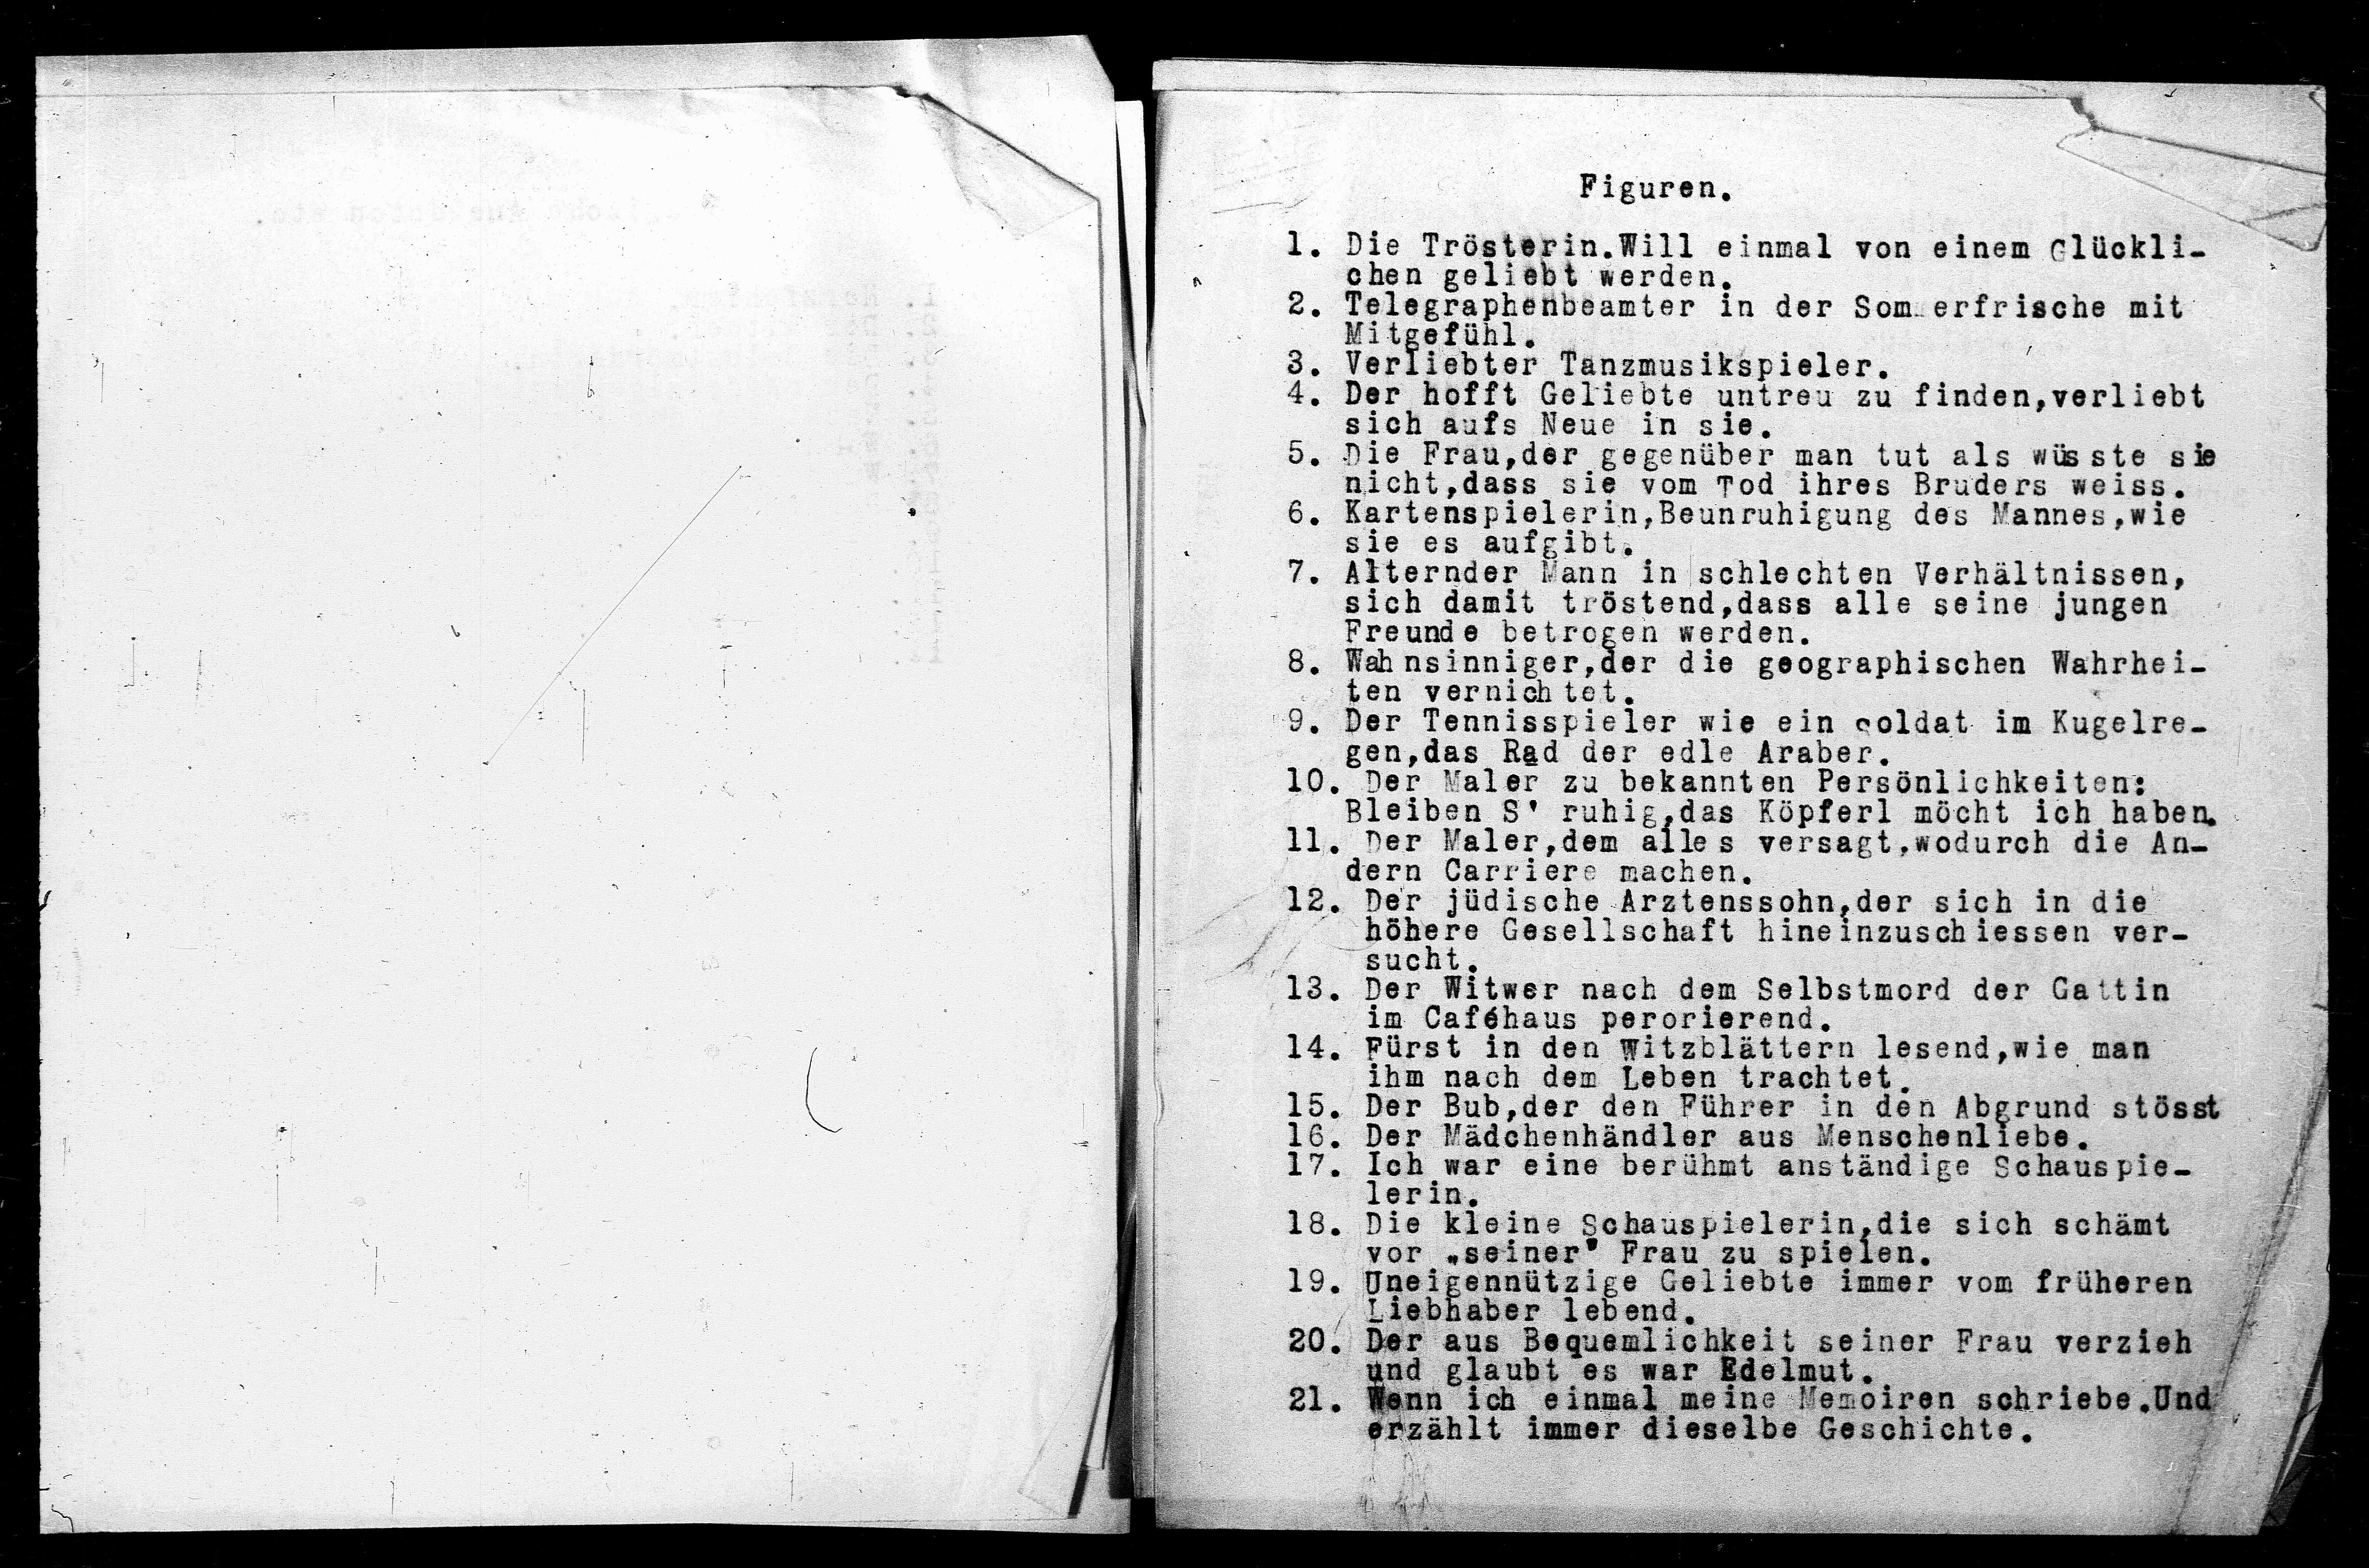 Figuren.
1. Die Trösterin.Will einmal von einem Glückli-
chen geliebt werden.
2. Telegraphenbeamter in der Sommerfrische mit
Mitgefühl.
3. Verliebter Tanzmusikspieler.
4. Der hofft Geliebte untreu zu finden,verliebt
sich aufs Neue in sie.
5. Die Frau,der gegenüber man tut als wüsste sie
nicht,dass sie vom Tod ihres Bruders weiss.
6. Kartenspielerin,Beunruhigung des Mannes,wie
sie es aufgibt.
7. Alternder Mann in schlechten Verhältnissen,
sich damit tröstend,dass alle seine jungen
Freunde betrogen werden.
8. Wahnsinniger,der die geographischen Wahrhei-
ten vernichtet.
9. Der Tennisspieler wie ein Soldat im Kugelre-
gen,das Rad der edle Araber.
10. Der Maler zu bekannten Persönlichkeiten:
Bleiben S' ruhig,das Köpferl möcht ich haben.
11. Der Maler,dem alles versagt,wodurch die An-
dern Carriere machen.
12. Der jüdische Arztenssohn,der sich in die
höhere Gesellschaft hineinzuschiessen ver-
sucht.
13. Der Witwer nach dem Selbstmord der Gattin
im Caféhaus perorierend.
14. Fürst in den Witzblättern lesend,wie man
ihm nach dem Leben trachtet.
15. Der Bub,der den Führer in den Abgrund stösst
16. Der Mädchenhändler aus Menschenliebe.
17. Ich war eine berühmt anständige Schauspie-
lerin.
18. Die kleine Schauspielerin,die sich schämt
vor „seiner" Frau zu spielen.
19. Uneigennützige Geliebte immer vom früheren
Liebhaber lebend.
20. Der aus Bequemlichkeit seiner Frau verzieh
und glaubt es war Edelmut.
21. Wenn ich einmal meine Memoiren schriebe.Und
erzählt immer dieselbe Geschichte.